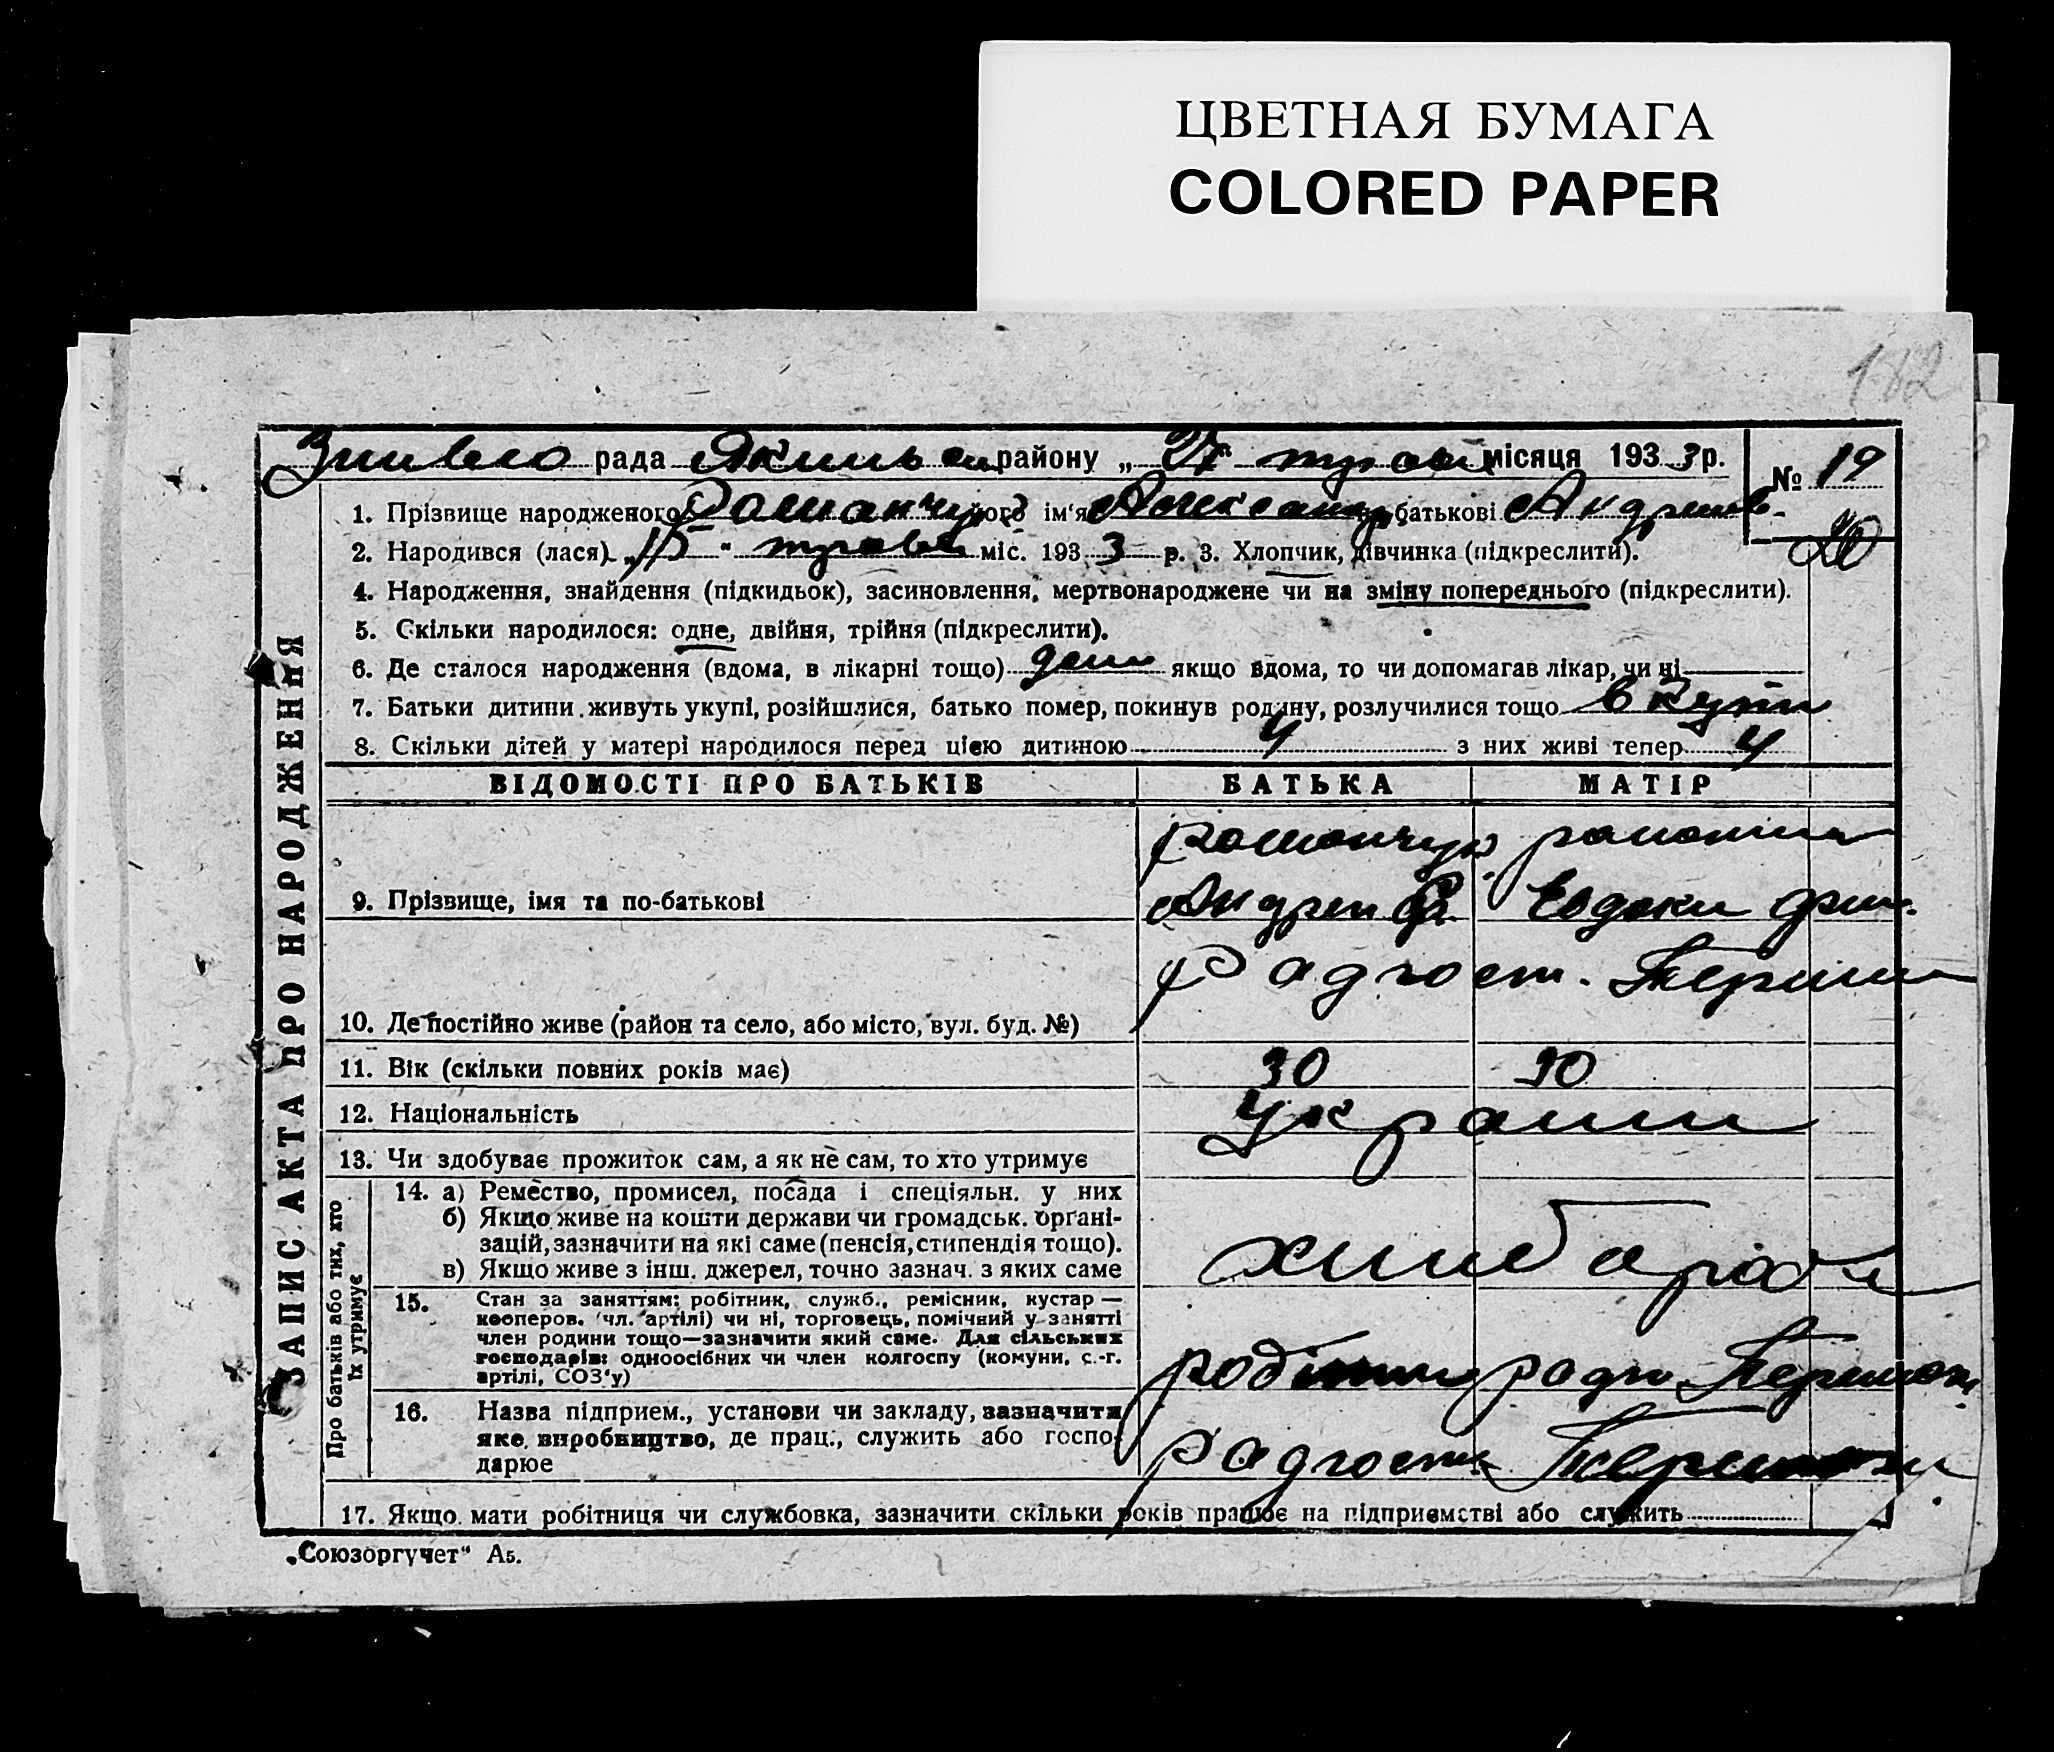 ЦВЕТНАЯ БУМАГА
COLORED PAPER
182
рада района „27" травня місяця 1933 р. № 19
1. Прізвище народженого Романчук його ім'я Александр по батькові Андриев-
20
2. Народився (лася) „15" травня міс. 1933 р. 3. Хлопчик, дівчинка (підкреслити).
4. Народження, знайдення (підкидьок), засиновлення, мертвонароджене чи на зміну попереднього (підкреслити).
5. Скільки народилося: одне, двійня, трійня (підкреслити).
6. Де сталося народження (вдома, в лікарні тощо) якщо вдома, то чи допомагав лікар, чи ні
7. Батьки дитини живуть укупі, розійшлися, батько помер, покинув родину, розлучилися тощо вкупи
8. Скільки дітей у матері народилося перед цією дитиною 4 з них живі тепер 4
ВІДОМОСТІ ПРО БАТЬКІВ БАТЬКА МАТІР
9. Прізвище, імя та по-батькові Романчук Андрей
10. Де постійно живе (район та село, або місто, вул. буд. №) Радгосп.
11. Вік (скільки повних років має) 30 30
12. Національність Украин
13. Чи здобуває прожиток сам, а як не сам, то хто утримує
14. а) Ремество, промисел, посада і спеціяльн. у них
б) Якщо живе на кошти держави чи громадськ. органі-
зацій, зазначити на які саме (пенсія, стипендія тощо).
в) Якщо живе з інш. джерел, точно зазнач. з яких саме
15. Стан за заняттям: робітник, служб., ремісник, кустар —
кооперов. (чл. артілі) чи ні, торговець, помічний у занятті
член родини тощо—зазначити який саме. Для сільських
господарів: одноосібних чи член колгоспу (комуни, с.-г.
артілі, СОЗ'у)
16. Назва підприєм., установи чи закладу, зазначити
яке виробництво, де прац., служить або госпо-
дарює
17. Якщо мати робітниця чи службовка, зазначити скільки років працює на підприємстві або служить
ЗАПИС АКТА ПРО НАРОДЖЕННЯ
Про батьків або тих, хто
їх утримує
„Союзоргучет" А5.